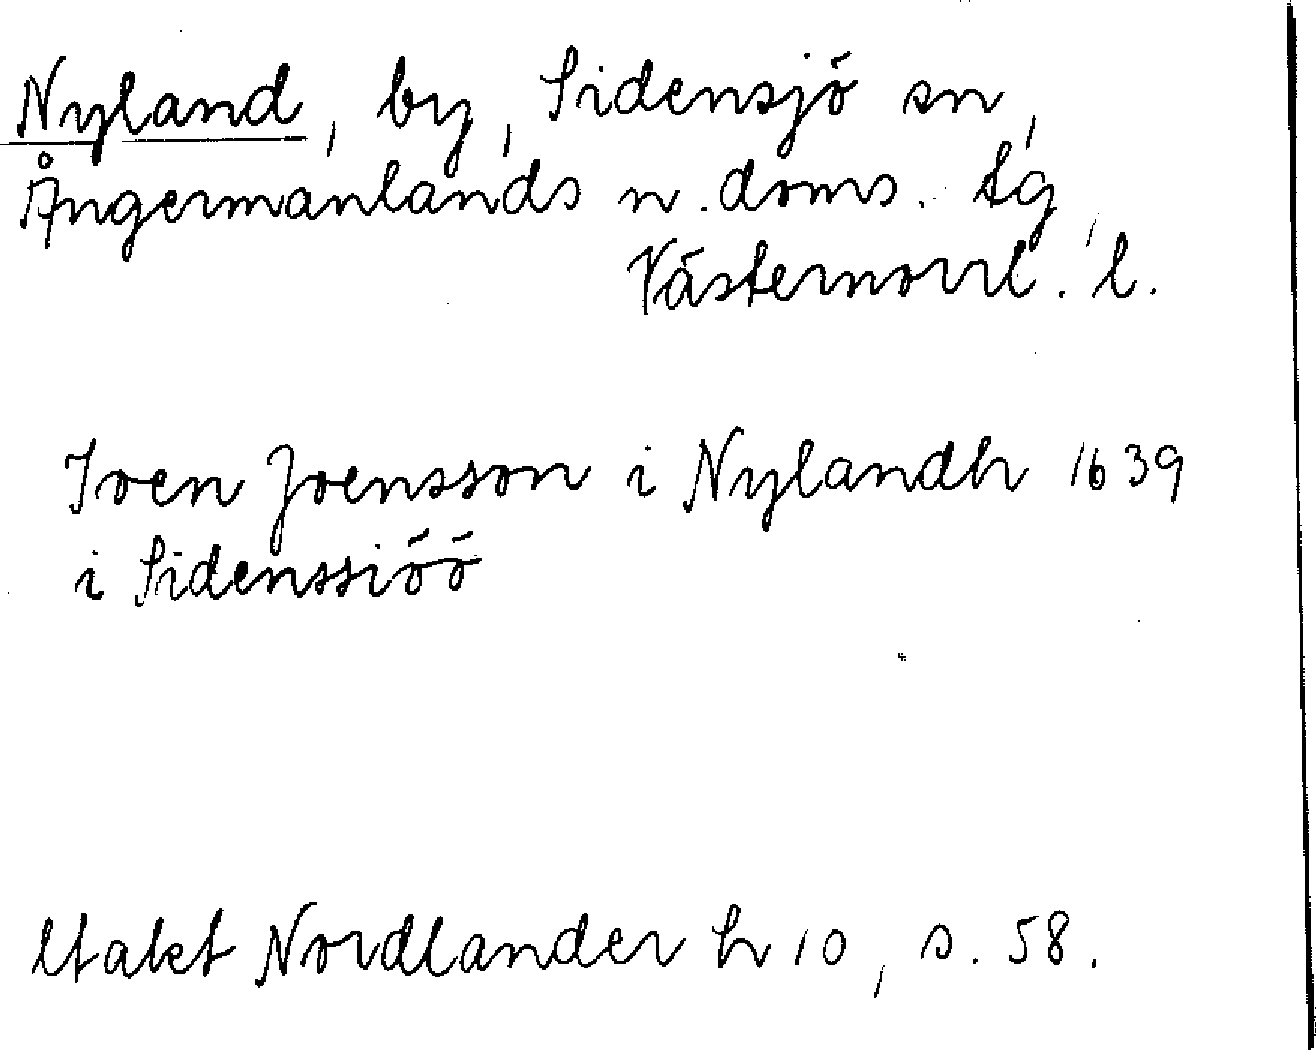 Nyland, by, Sidensjö sn,
Ångermanlands n. doms. tg,
Västernorrl. l.
Ioen Joensson i Nylandh 1639
i Sidenssiöö
Utakt Nordlander h 10, s. 58.